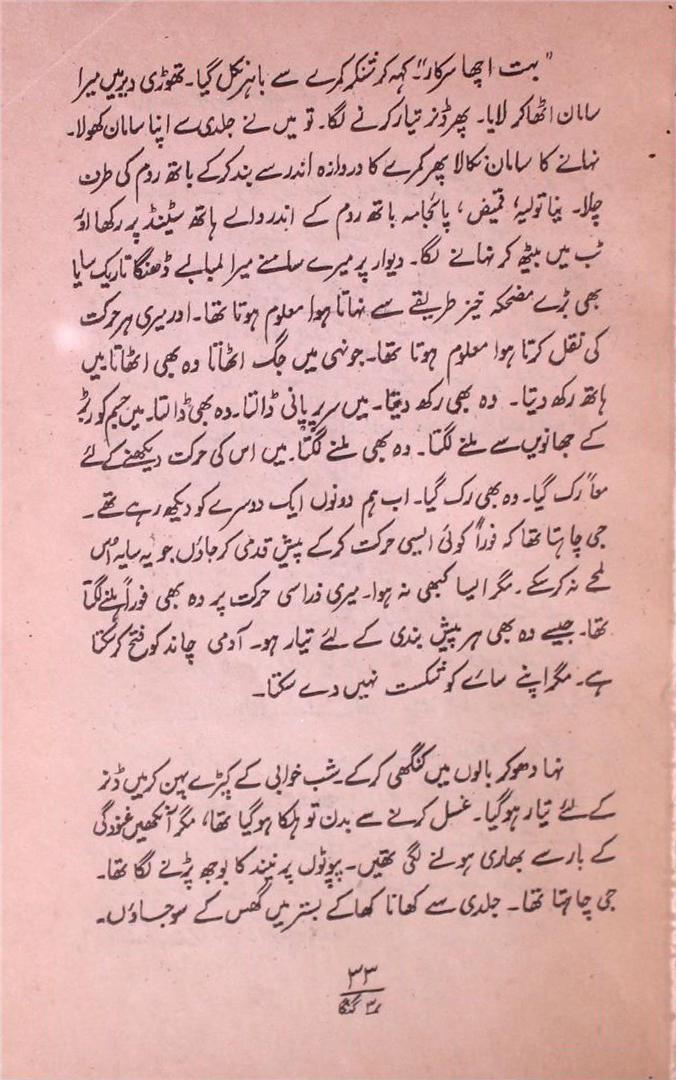 "بہت اچھا سرکار" کہہ کر شنکر کمرے سے باہر نکل گیا۔ تھوڑی دیر میں میرا
سامان اٹھا کر لایا۔ پھر ڈنر تیار کرنے لگا۔ تو میں نے جلدی سے اپنا سامان کھولا۔
نہانے کا سامان نکالا پھر کمرے کا دروازہ اندر سے بند کرکے باتھ روم کی طرف
چلا۔ نیا تولیہ، قمیض، پائجامہ باتھ روم کے اندر والے ہاتھ سٹینڈ پر رکھا اور
ٹب میں بیٹھ کر نہانے لگا۔ دیوار پر میرے سامنے میرا لمبا بے ڈھنگا تاریک سایا
بھی بڑے مضحکہ خیز طریقے سے نہاتا ہوا معلوم ہوتا تھا۔ اور میری ہر حرکت
کی نقل کرتا ہوا معلوم ہوتا تھا۔ جونہی میں جگ اٹھاتا وہ بھی اٹھاتا میں
ہاتھ رکھ دیتا۔ وہ بھی رکھ دیتا۔ میں سر پر پانی ڈالتا۔ وہ بھی ڈالتا۔ میں جسم کو ربڑ
کے جھانویں سے ملنے لگتا۔ وہ بھی ملنے لگتا۔ میں اس کی حرکت دیکھنے کے لئے
معاً رک گیا۔ وہ بھی رک گیا۔ اب ہم دونوں ایک دوسرے کو دیکھ رہے تھے۔
جی چاہتا تھا کہ فوراً کوئی ایسی حرکت کرکے پیش قدمی کر جاؤں جو یہ سایہ اُس
لمحے نہ کرسکے۔ مگر ایسا کبھی نہ ہوا۔ میری ذرا سی حرکت پر وہ بھی فوراً ہلنے لگتا
تھا۔ جیسے وہ بھی ہر پیش بندی کے لئے تیار ہو۔ آدمی چاند کو فتح کرسکتا
ہے۔ مگر اپنے سائے کو شکست نہیں دے سکتا۔
نہا دھو کر بالوں میں کنگھی کرکے شب خوابی کے کپڑے پہن کر میں ڈنر
کے لئے تیار ہوگیا۔ غسل کرنے سے بدن تو ہلکا ہوگیا تھا، مگر آنکھیں غنودگی
کے بار سے بھاری ہونے لگی تھیں۔ پپوٹوں پر نیند کا بوجھ پڑنے لگا تھا۔
جی چاہتا تھا۔ جلدی سے کھانا کھا کے بستر میں گھس کے سو جاؤں۔
۳۳
گنگا